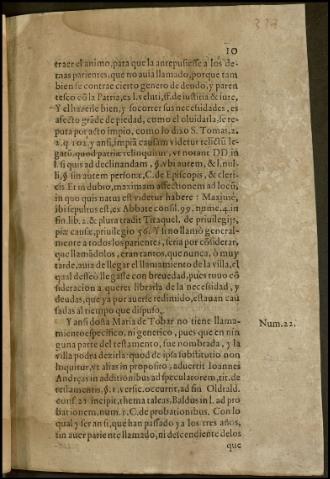 10
traer el animo, para que la antepusiesse a los de-
mas parientes, que no auia llamado, porque tam
bien se contrae cierto genero de deudo, y paren
tesco cõ la Patria, ex l. veluti, ff. de iustitia & iure,
Y el hazerle bien, y socorrer sus necessidades, es
afecto grãde de piedad, como el oluidarla, se re
puta por acto impio, como lo dixo S. Tomas, 2.
2. q. 102. y ansi, impiã causam videtur relictũ le
gatũ, quod patriæ relinquitur, vt notant DD in
l. si quis ad declinandam, §. vbi autem, & l. nul-
li, §. sin autem personæ, C. de Episcopis, & cleri-
cis. Et in dubio, maximam affectionem ad locũ,
in quo quis natus est videtur habere: Maximè,
ibi sepultus est, ex Abbate consil. 99. nume. 4. in
fin. lib. 2. & plura tradit Tiraquel. de priuilegijs
piæ causæ, priuilegio 56. Y si no llamò general-
mente a todos los parientes, seria por cõsiderar,
que llamãdolos, eran tantos, que nunca, ò muy
tarde, auia de llegar el llamamiento de la villa, el
qual desseò llegasse con breuedad, pues tuuo cõ
sideracion a querer librarla de la necessidad, y
deudas, que ya por auerse redimido, estauan cau
sadas al tiempo que dispuso.
Y ansi doña Maria de Tobar no tiene llama-
Num. 22.
miento especifico, ni generico, pues que en nin
guna parte del testamento, fue nombrada, y la
villa podra dezirla: quod de ipsa substitutio non
loquitur, vt alias in proposito, aduertit Ioannes
Andreas in additionibus ad speculatorem, tit. de
testamentis, §. 1. versic. occurrit, ad fin. Oldrald.
cons. 21. incipit, thema tale est, Baldus in l. ad pro
bationem, num. 1. C. de probationibus. Con lo
qual y ser ansi, que han passado ya los tres años,
sin auer pariente llamado, ni descendiente de los
que